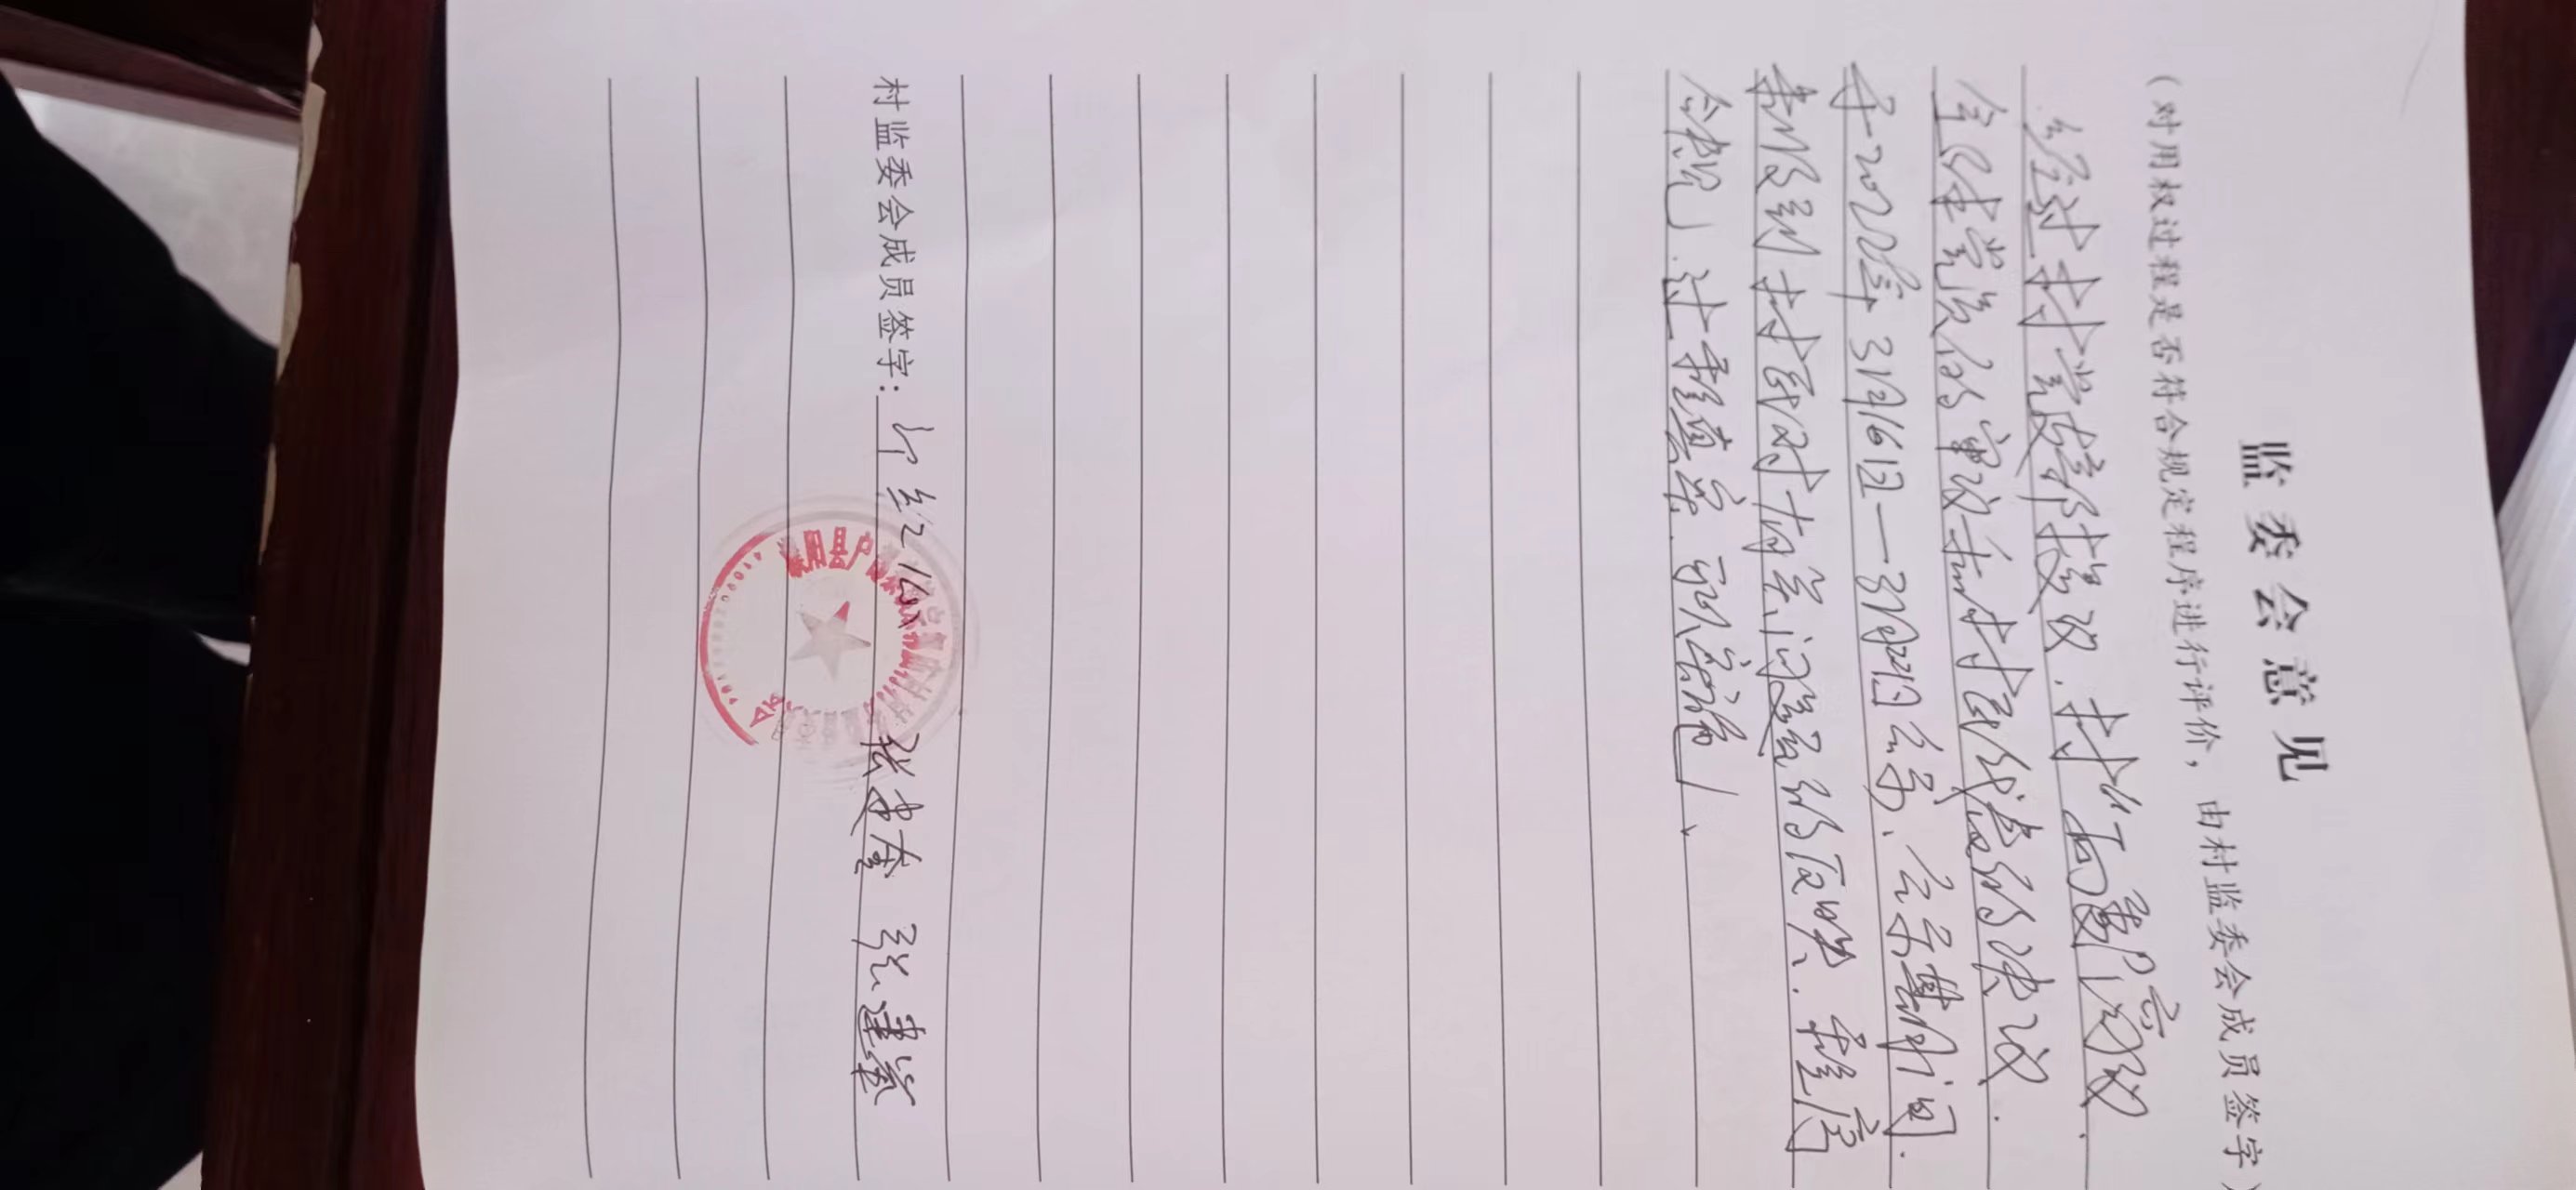 监委会意见
（对用权过程是否符合规定程序进行评价，由村监委会成员签字）
经过村党支部提议，村两委商议，
全体党员的审议和村民代表的决议，
于2022年3月16日—3月22日公示，公示期间，
未收到村民对有关问题的反映，程序
合规，过程真实，可实施。
村监委会成员签字：红 张建奎 张建